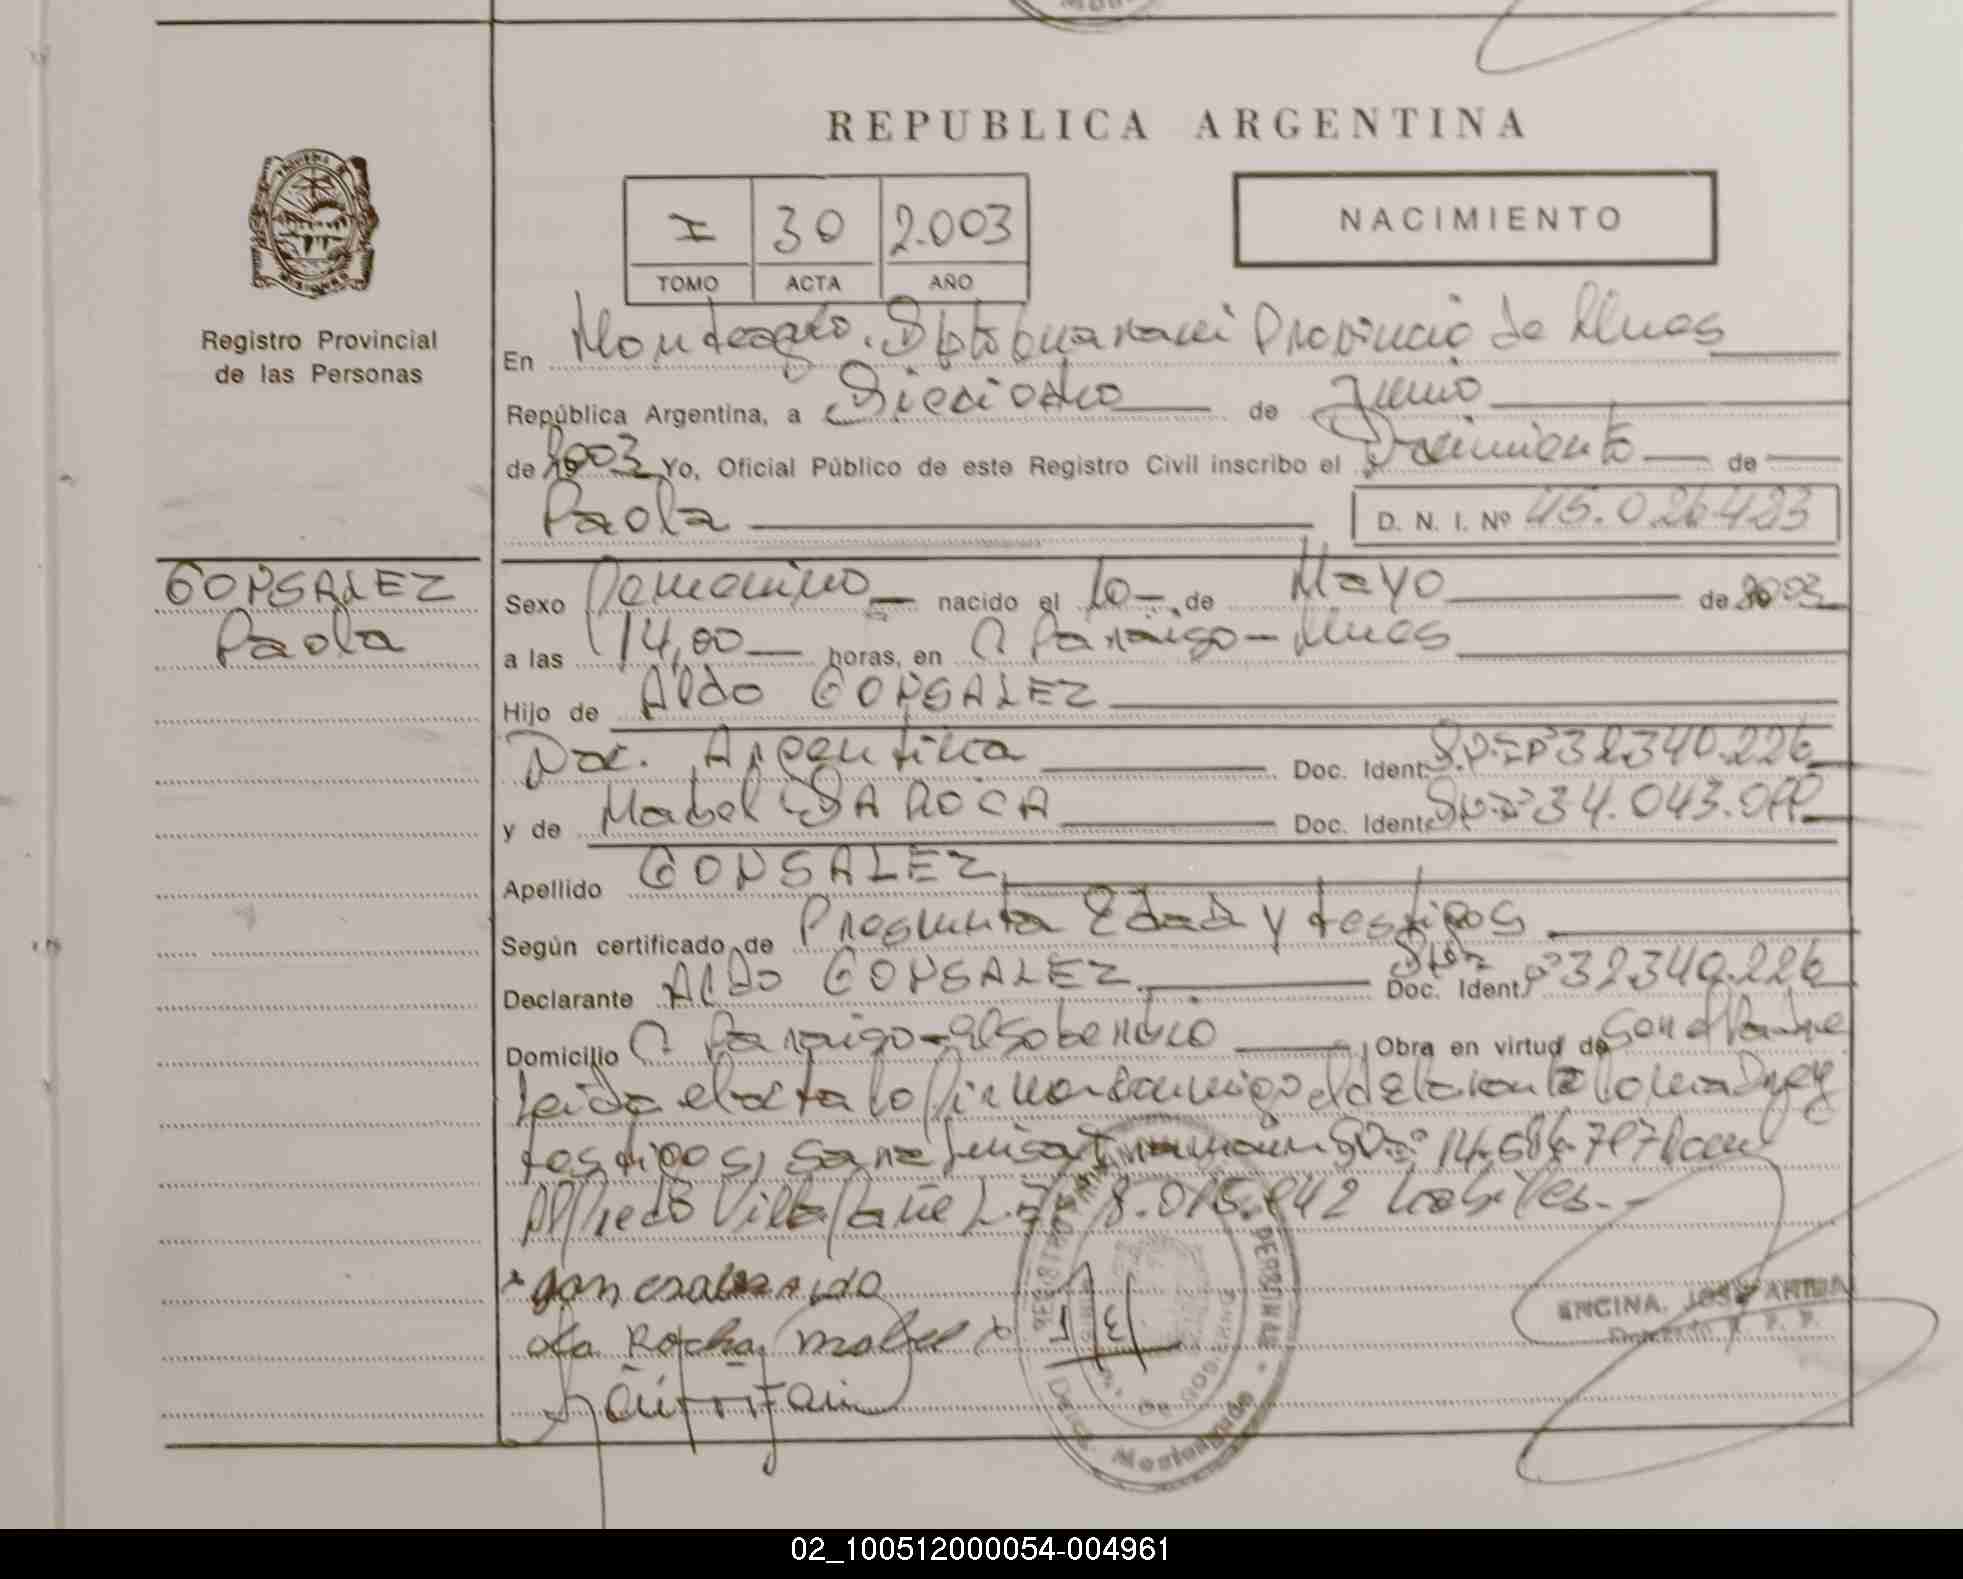 REPUBLICA ARGENTINA
NACIMIENTO
I 30 2.003
TOMO ACTA AÑO
Registro Provincial
de las Personas
En Monteagudo. Dpto Guarani Provincia de Mnes
República Argentina, a Dieciocho de Junio
de 2003 Yo, Oficial Público de este Registro Civil inscribo el Nacimiento de
Paola
D. N. I. Nº 45.026423
GONSALEZ
Paola
Sexo Femenino nacido el 10 de Mayo de 2003
a las 14,00 horas, en C Paraiso - Mnes
Hijo de Aldo GONSALEZ
Nac. Argentina Doc. Ident. 32340.226
y de Mabel DA ROCA Doc. Ident. 34.043.
Apellido GONSALEZ
Según certificado de Presunta Edad y testigos
Declarante Aldo GONSALEZ Doc. Ident. 32340.226
Domicilio C Paraiso - Alsoberbio Obra en virtud de ser el Padre
Leida el acta lo firman conmigo el declarante la madre y
testigos, Luisa 14.584.
Alfredo Villafañe 8.015.842 habiles. -
La Rocha, mabel
ENCINA, JOSE
REGISTRO PERSONAS
Deleg. Monteagudo
02_100512000054-004961